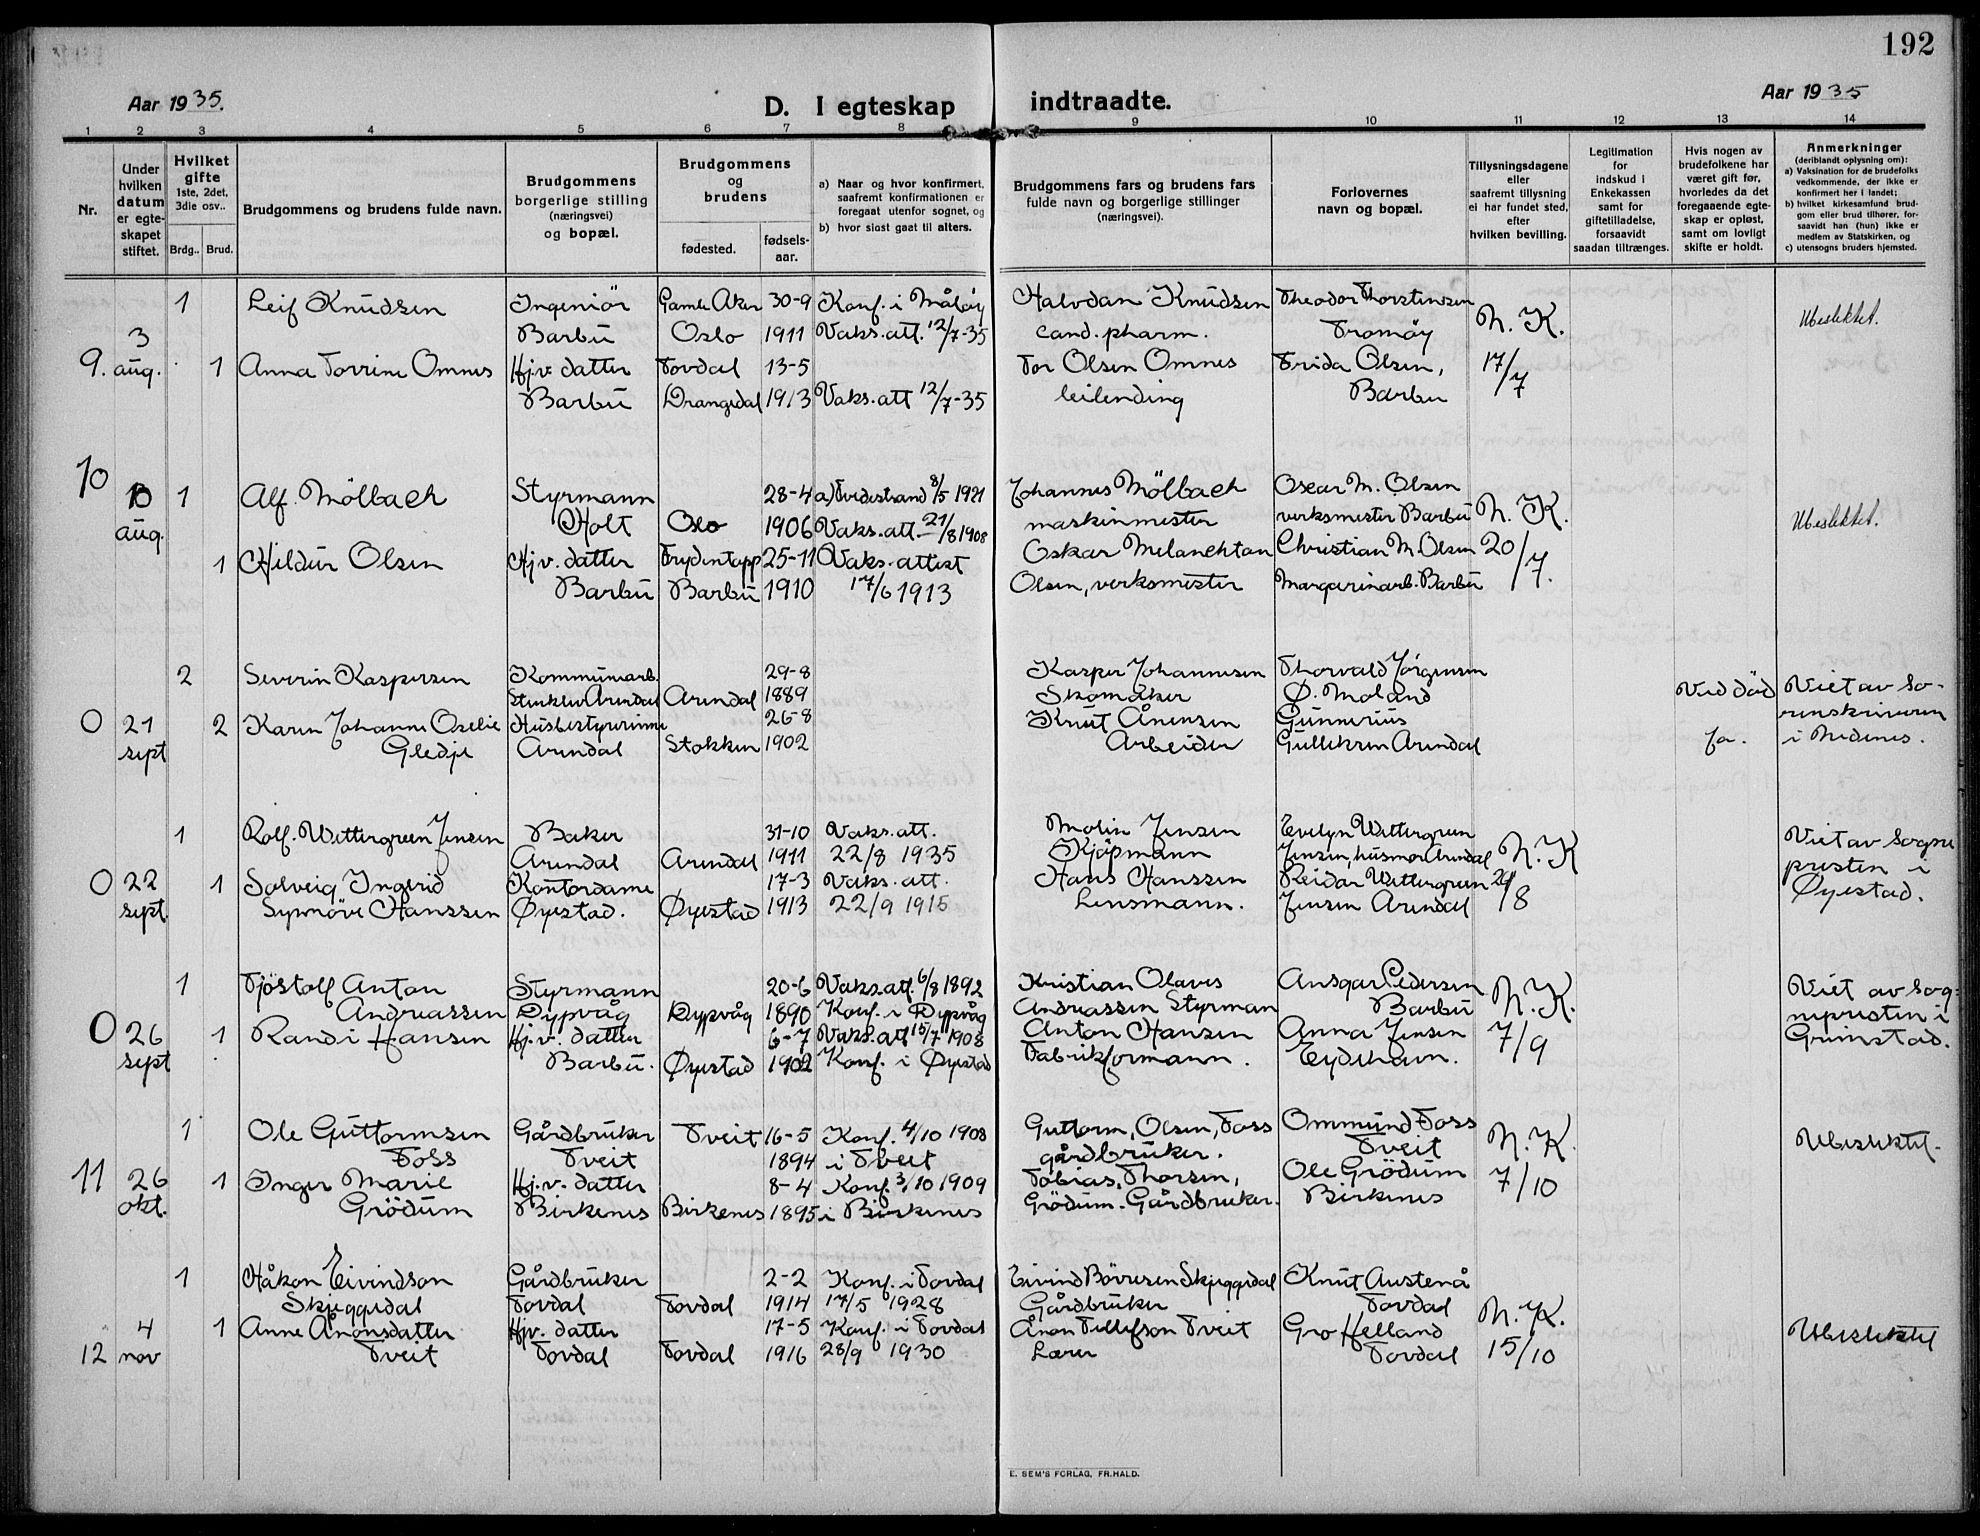 192
Aar 1935.
D. I egteskap indtraadte.
Aar 1935
1 2 3 4 5 6 7 8 9 10 11 12 13 14
Nr.
Under hvilken datum er egteskapet stiftet.
Hvilket gifte 1ste, 2det, 3die osv..
Brdg..
Brud.
Brudgommens og brudens fulde navn.
Brudgommens borgerlige stilling (næringsvei) og bopæl.
Brudgommens og brudens
fødested.
fødselsaar.
a) Naar og hvor konfirmert, saafremt konfirmationen er foregaat utenfor sognet, og
b) hvor sidst gaat til alters.
Brudgommens fars og brudens fars fulde navn og borgerlige stillinger (næringsvei).
Forlovernes navn og bopæl.
Tillysningsdagene eller saafremt tillysning ei har fundet sted, efter hvilken bevilling.
Legitimation for indskud i Enkekassen samt for giftetilladelse, forsaavidt saadan tiltrænges.
Hvis nogen av brudefolkene har været gift før, hvorledes da det foregaaende egteskap er opløst, samt om lovligt skifte er holdt.
Anmerkninger (deriblandt oplysning om):
a) Vaksination for de brudefolks vedkommende, der ikke er konfirmert her i landet;
b) hvilket kirkesamfund brudgom eller brud tilhører, forsaavidt han (hun) ikke er medlem av Statskirken, og
c) utensogns bruders hjemsted.
1 Leif Knudsen Ingeniör Gamle Aker 30-9 Konf. i Måløy Halvdan Knudsen Theodor Thorstensen N. K. Ubeslektet.
3 Barbu Oslo 1911 Vaks. att. 12/7-35 cand. pharm. Tromöy
9. aug. 1 Anna Torrine Omnes Hj.v. datter Tovdal 13-5 Tor Olsen Omnes Frida Olsen, 17/7
Barbu Drangedal 1913 Vaks. att 12/7-35 leilending Barbu
10 1 Alf. Mölbach Styrmann 28-4 a) Tvedestrand 8/5 1921 Johannes Mölbach Oscar M. Olsen N. K. Ubeslektet.
aug. Holt Oslo 1906 Vaks. att. 21/8 1908 maskinmester verksmester Barbu
1 Hildur Olsen Hj.v. datter Frydentopp 25-11 Vaks. attest Oskar Melanchtan Christian M. Olsen 20/7.
Barbu Barbu 1910 17/6 1913 Olsen, verksmester Margarinarb. Barbu
2 Severin Kaspersen Kommunearb. 29-8 Kasper Johannesen Thorvald Jörgensen
Arendal Arendal 1889 Skomaker Ø. Moland Ved död Viet av so-
0 21 2 Karen Johanne Oselie Husbestyrerinne 26-8 Knut Ånensen Gunnerius renskriveren
sept Gledje Arendal Stokken 1902 Arbeider Gulliksen Arendal Ja. i Nedenes.
1 Rolf. Wettergreen Jensen Baker 31-10 Vaks. att. Molin Jensen Evelyn Wettergreen Viet av Sogne
Arendal Arendal 1911 22/8 1935 Kjöpmann Jensen, husmor Arendal N. K presten i
0 22 1 Solveig Ingerid Kontordame 17-3 Vaks. att. Hans Hanssen Reidar Wettergreen /8 Øyestad.
sept. Synnöve Hanssen Øyestad. Øyestad 1913 22/9 1915 Lensmann. Jensen Arendal
1 Tjöstolf Anton Styrmann 20-6 Vaks. att. 6/8 1892 Kristian Olaves Ansgar Pedersen Viet av sog-
Andreassen Dypvåg Dypvåg 1890 Konf. i Dypvåg Andreassen Styrman Barbu N. K. nepresten i
0 26 1 Randi Hansen Hj. v. datter 6-7 Vaks. att 15/7 1908 Anton Hansen Anna Jensen 7/9 Grimstad.
sept Barbu. Øyestad 1902 Konf. i Øyestad Fabrikformann. Eydehavn.
1 Ole Guttormsen Gårdbruker Tveit 16-5 Konf. 4/10 1908 Guttorm, Olsen, Foss Ommund Foss N. K. Ubeslektet.
Foss Tveit 1894 i Tveit gårdbruker. Tveit
11 26 1 Inger Marie Hj. v. datter 8-4 Konf. 3/10 1909 Tobias, Thorsen, Ole Grödum 7/10
okt. Grödum Birkenes Birkenes 1895 i Birkenes Grödum. Gårdbruker. Birkenes
1 Håkon Eivindson Gårdbruker 2-2 Konf. i Tovdal Eivind Börresen Skjeggedal Knut Austenå
Skjeggedal Tovdal Tovdal 1914 17/5 1928 Gårdbruker Tovdal N. K.
4 1 Anne Ånonsdatter Hjv. datter 17-5 Konf. i Tovdal Ånon Tellefson Tveit Gro Helland Ubeslektet
12 nov Tveit Tovdal Tovdal 1916 28/9 1930 Lærer Tovdal 15/10
E. SEM'S FORLAG, FR.HALD.